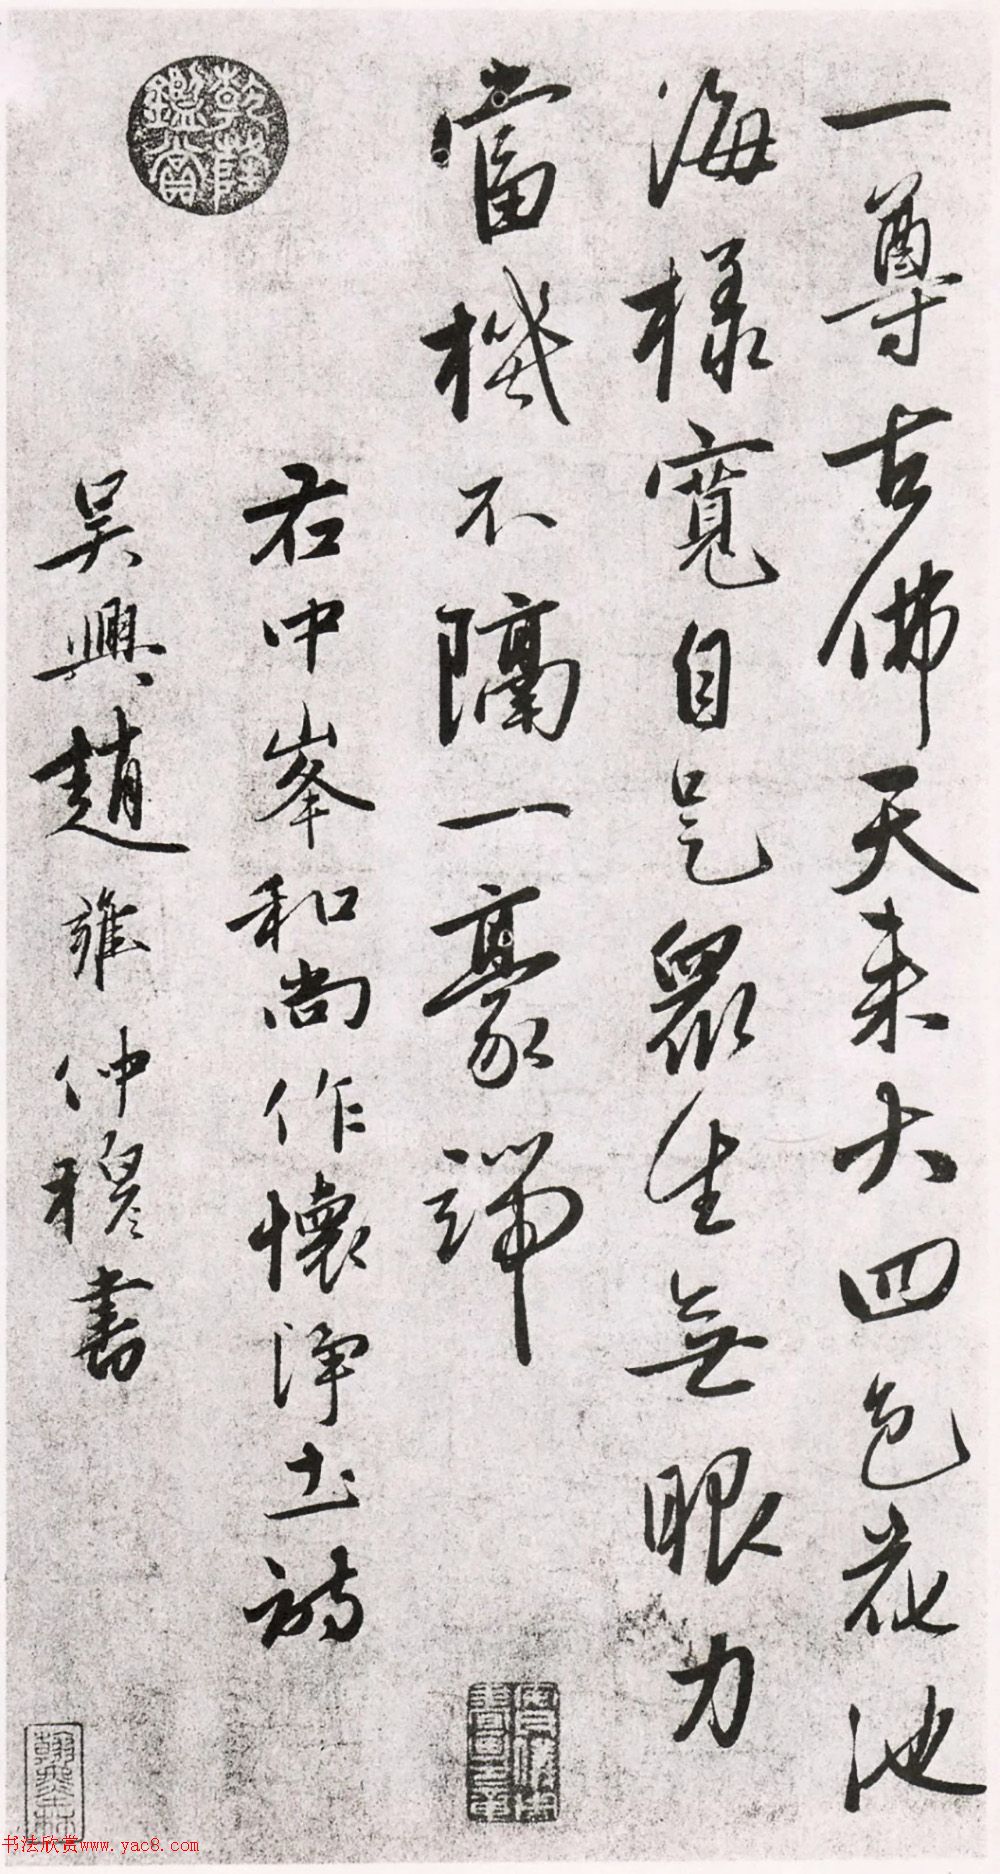 一尊古佛天来大四色花池
海樣寬自是眾生無眼力
當機不隔一豪端
右中峯和尚作懷淨土詩
吳興趙雍仲穆書
乾隆鑑賞
书法欣赏www.yac8.com